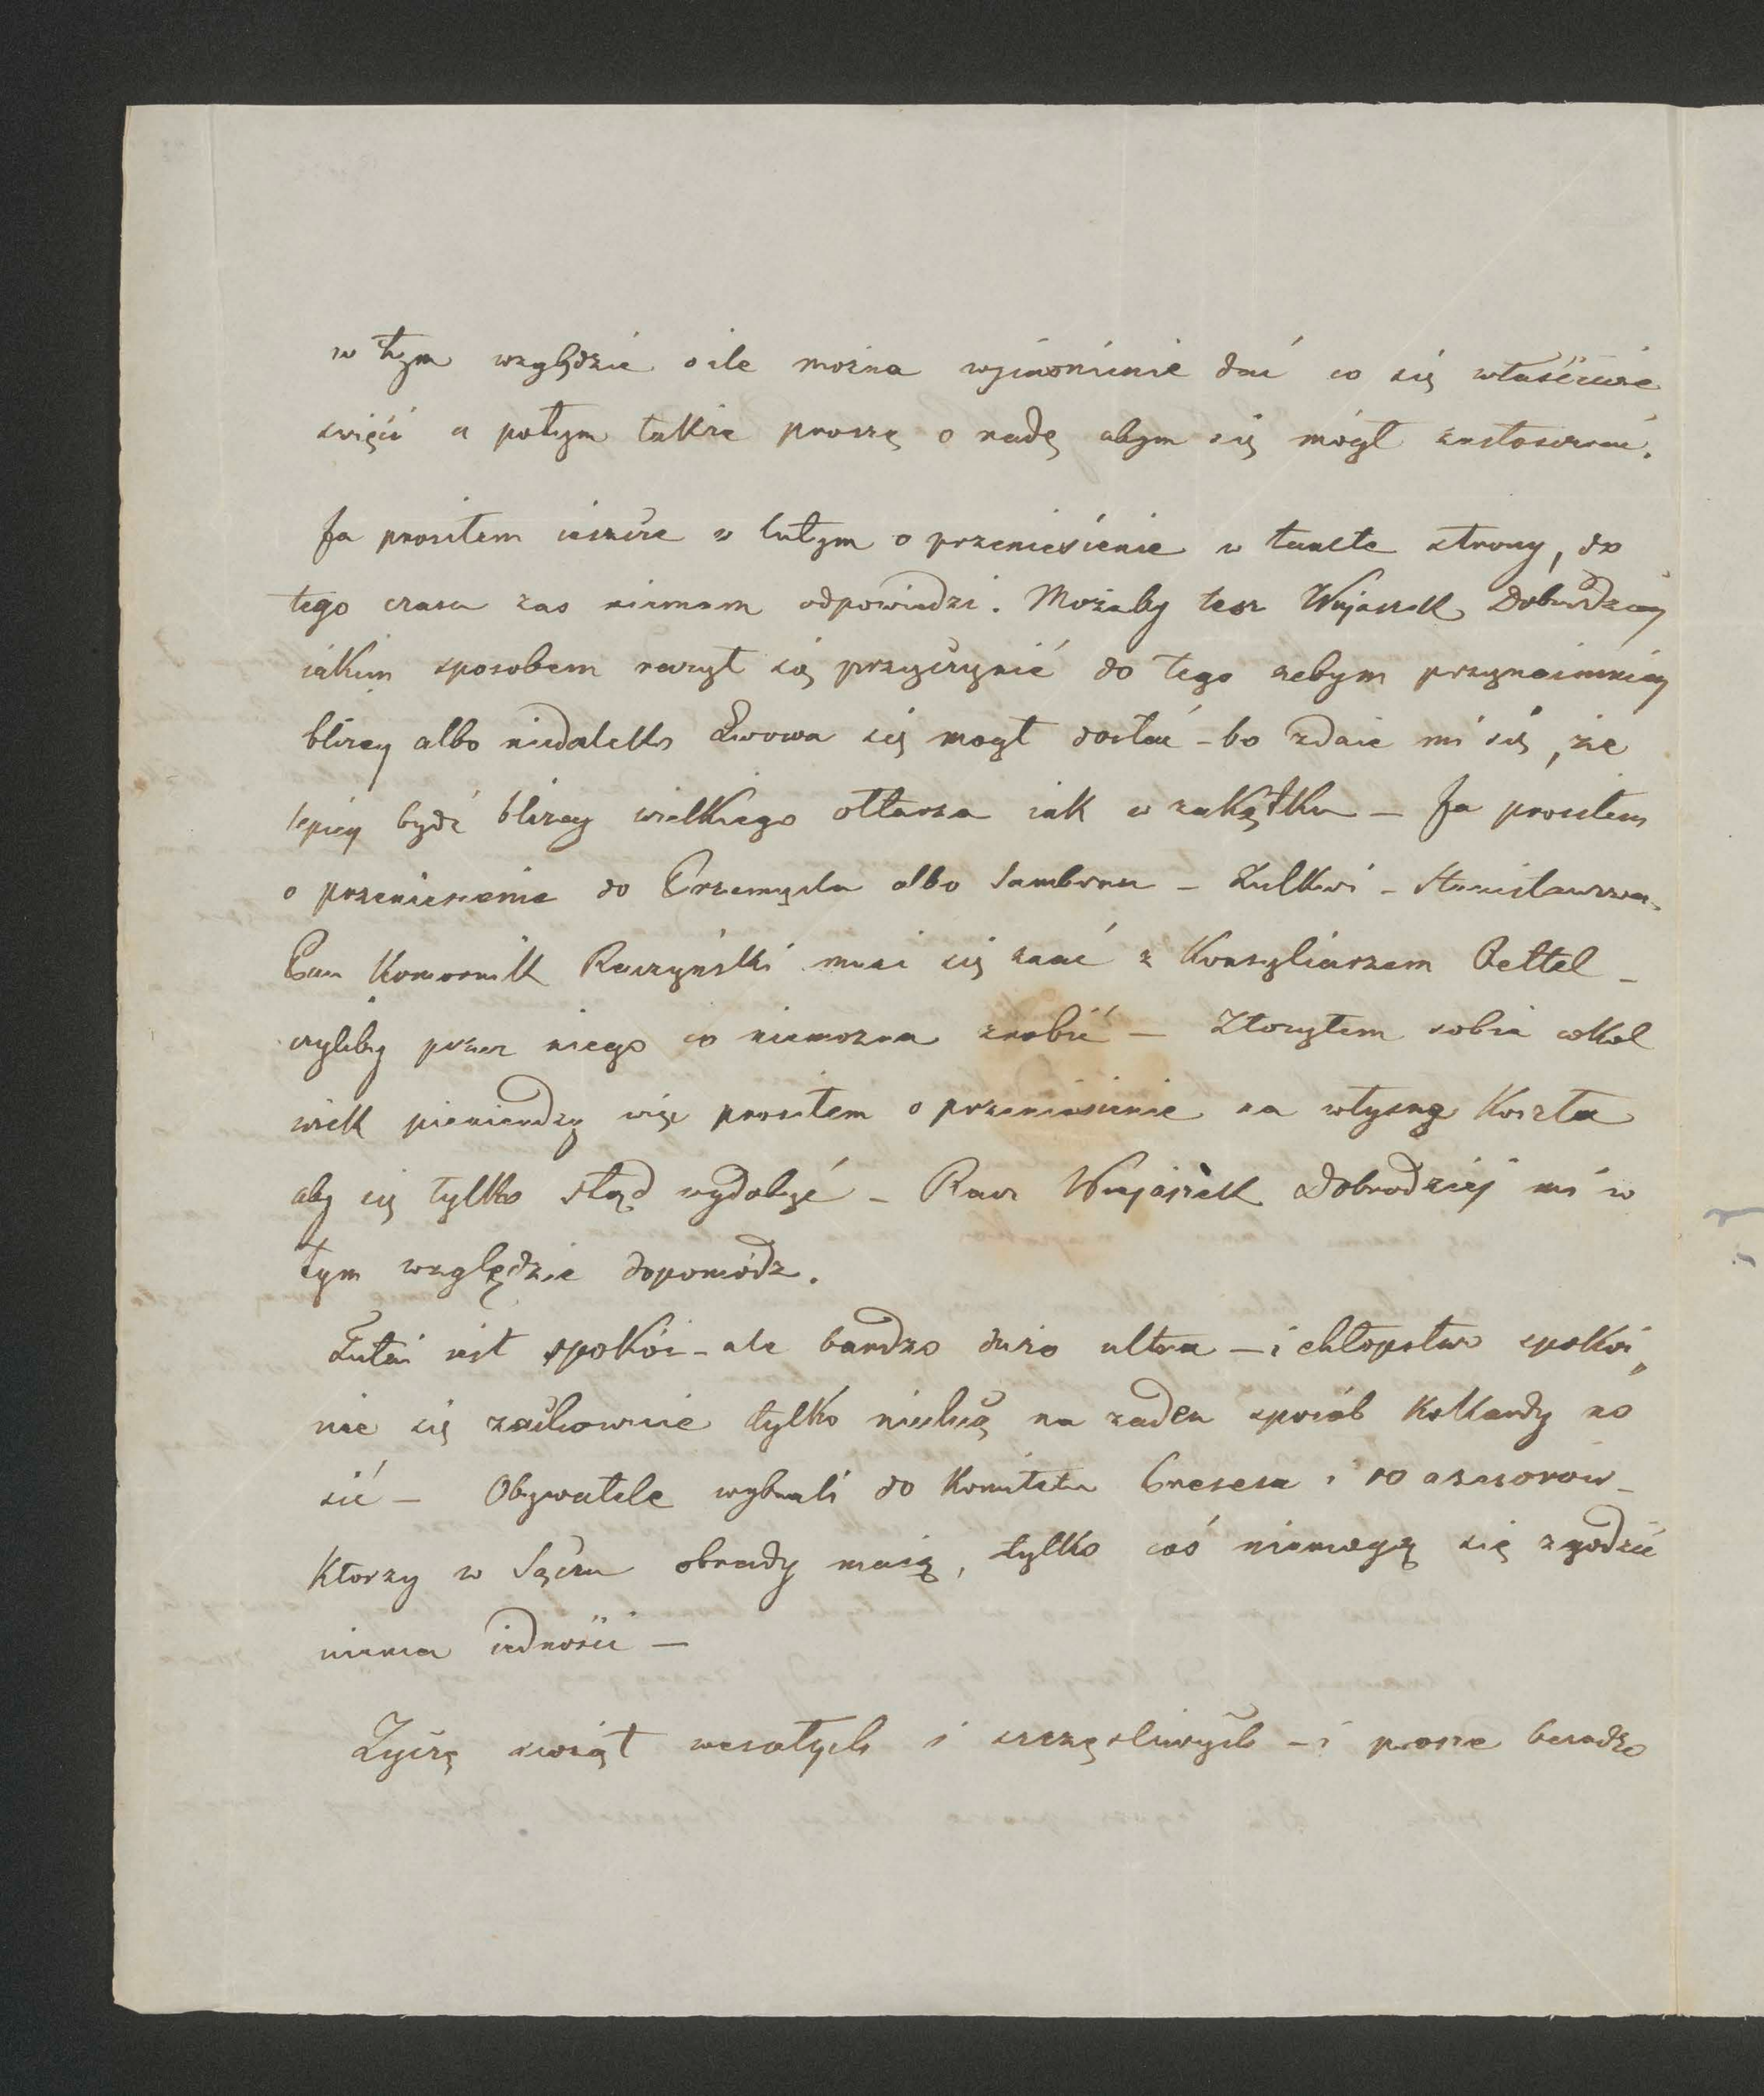 w tym względzie o ile można wyiaśnienie dać co się właściwie
święci a potym także proszę o radę abym się mógł zastosować.
Ja prosiłem ieszcze w lutym o przeniesienie w tamte strony, do
tego czasu zas niemam odpowiedzi. Możeby tesz Wujaszek Dobrodziey
iakim sposobem raczył się przyczynić do tego zebym przynaimniey
blizey albo niedaleko Lwowa się mogł dostać – bo zdaie mi się, że
lepiey bydź blizey wielkiego ołtarza iak w zakątku – Ja prosiłem
o przeniesienie do Przemyśla albo Sambora – Zulkwi – Stanisławowa.
Pan Komornik Raczyński musi się znać z Konsyliarzem Pettel –
czyliby przez niego co niemozna zrobić – Złozyłem sobie cokol
wiek pieniendzy więc prosiłem o przeniesienie na własne koszta
aby się tylko stąd wydobyć – Racz Wujaszek Dobrodziej mi w
tym względzie dopomódz.
Tutai iest spokói – ale bardzo duzo ultra – i chłopstwo spokói„
nie się zachowuie tylko niechcą na zaden sposób kokardy no
sić – Obywatele wybrali do Komitetu Presesa i 10 asesorów –
Ktorzy w Sączu obrady maią, tylko coś niemogą się zgodzić
niema iedności –
Zyczę świąt wesołych i szczęsliwych – i prosze bardzo